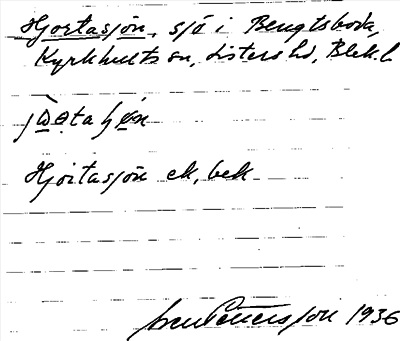 Hjortasjön, sjö i Bengtsboda,
Kyrkhults sn, Listers hd, Blek. l
Hjortasjön ek. bek
Pettersson 1936